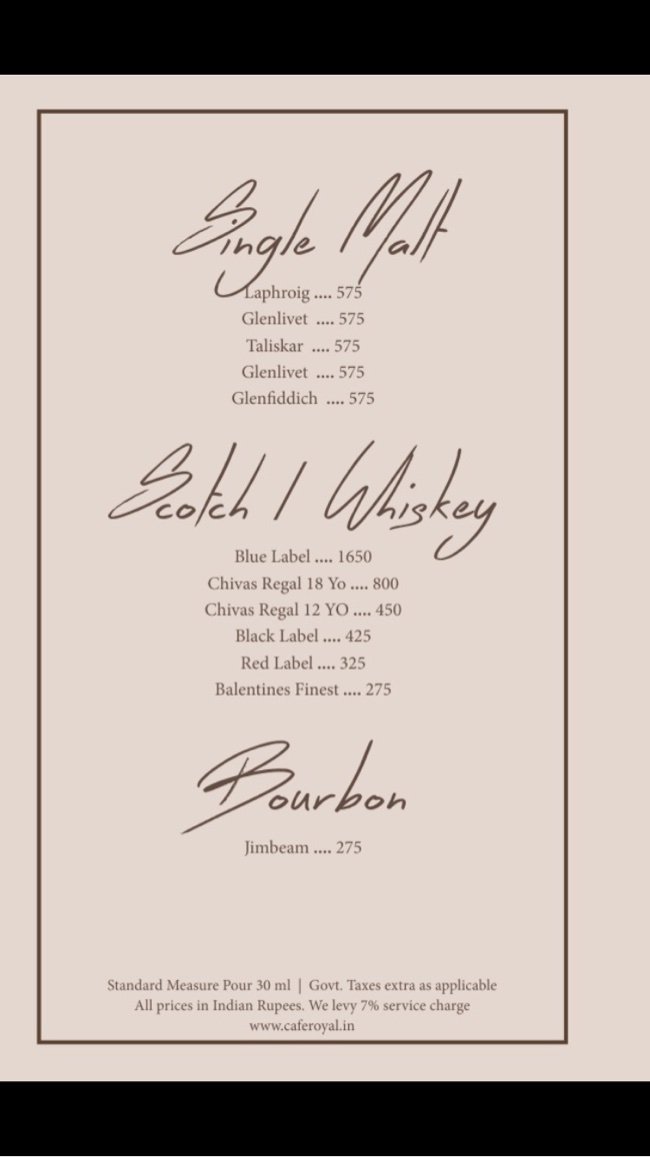 Single Malt
Laphroig .... 575
Glenlivet .... 575
Taliskar .... 575
Glenlivet .... 575
Glenfiddich .... 575
Scotch / Whiskey
Blue Label .... 1650
Chivas Regal 18 Yo .... 800
Chivas Regal 12 YO .... 450
Black Label .... 425
Red Label .... 325
Balentines Finest .... 275
Bourbon
Jimbeam .... 275
Standard Measure Pour 30 ml | Govt. Taxes extra as applicable
All prices in Indian Rupees. We levy 7% service charge
www.caferoyal.in